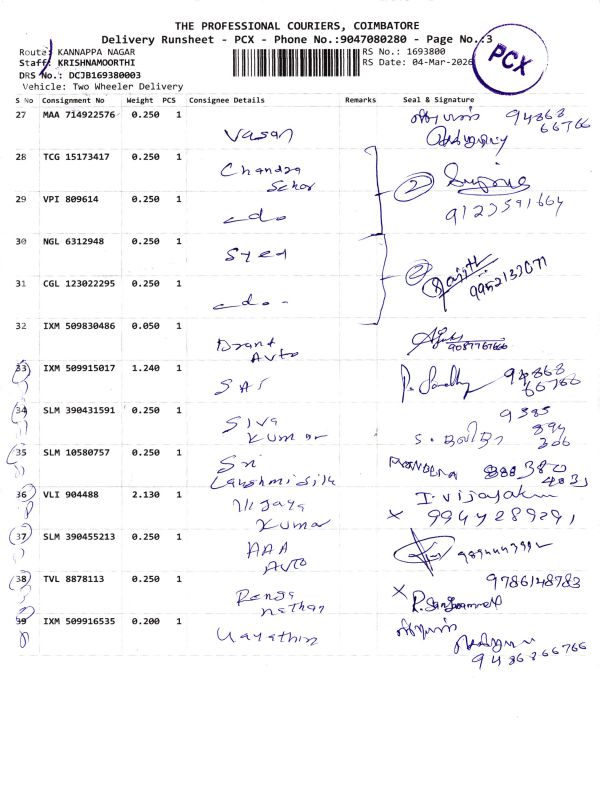 THE PROFESSIONAL COURIERS, COIMBATORE
Delivery Runsheet - PCX - Phone No.:9047080280 - Page No.:3
Route: KANNAPPA NAGAR
RS No.: 1693800
Staff: KRISHNAMOORTHI
RS Date: 04-Mar-2026
PCX
DRS No.: DCJB169380003
Vehicle: Two Wheeler Delivery
S No Consignment No Weight PCS Consignee Details Remarks Seal & Signature
27 MAA 714922576 0.250 1
94868
66766
Vasan
28 TCG 15173417 0.250 1
Chandra
Sekar
2
29 VPI 809614 0.250 1
9123591664
do
30 NGL 6312948 0.250 1
Syed
2
31 CGL 123022295 0.250 1
9952132071
do
32 IXM 509830486 0.050 1
Auto
9087767666
33 IXM 509915017 1.240 1
94868
66766
34 SLM 390431591 0.250 1
Siva
Kumar
9385
894
306
35 SLM 10580757 0.250 1
Sri
Lakshmi Silk
36 VLI 904488 2.130 1
Vijaya
Kumar
I. Vijayakum
X 9944289291
37 SLM 390455213 0.250 1
AAA
Auto
38 TVL 8878113 0.250 1
9786148783
X
Ranga
nathan
39 IXM 509916535 0.200 1
9486866766